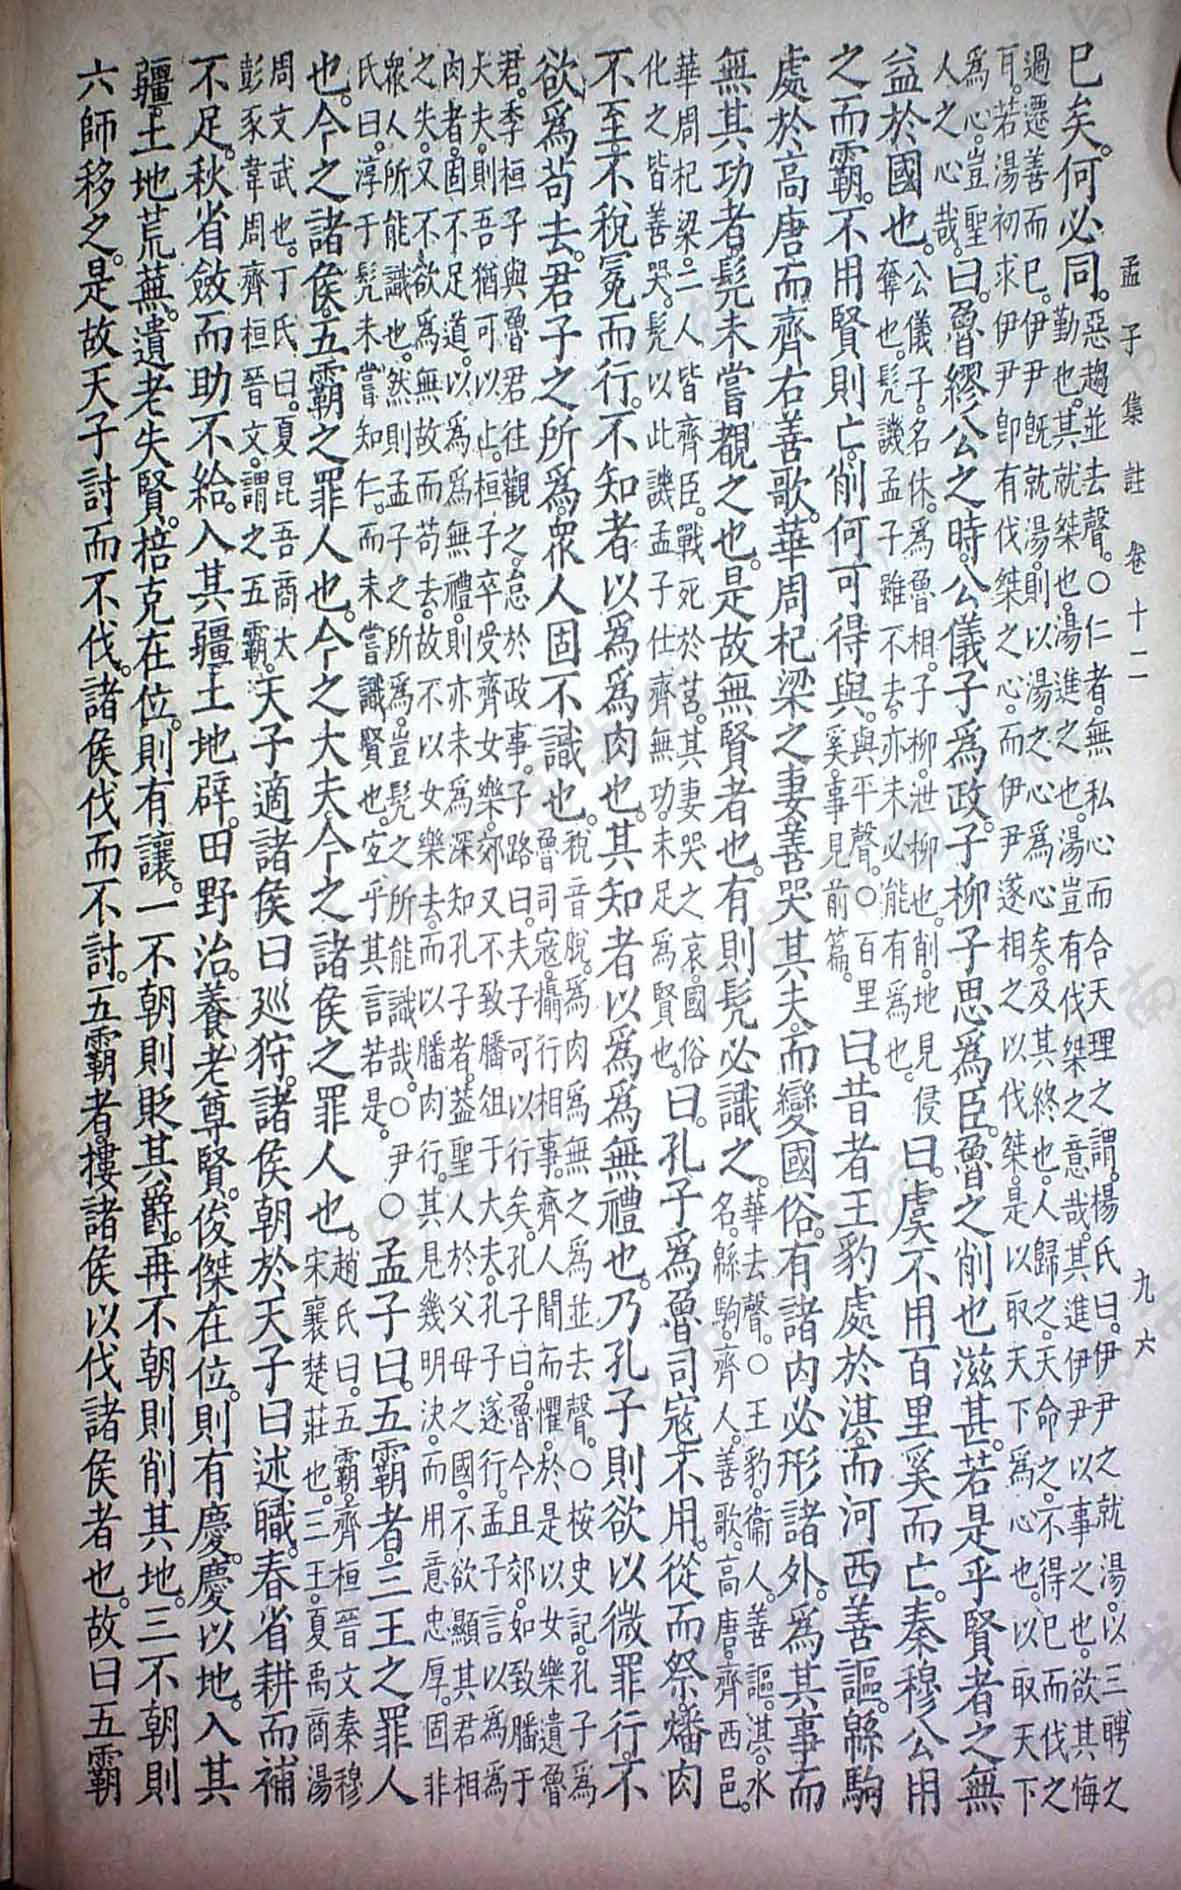 孟子集註 卷十二 九六
已矣。何必同。
惡趨並去聲。○仁者。無私心而合天理之謂。楊氏曰。伊尹之就湯。以三聘之
勤也。其就桀也。湯進之也。湯豈有伐桀之意哉。其進伊尹以事之也。欲其悔
過遷善而已。伊尹旣就湯。則以湯之心爲心矣。及其終也。人歸之。天命之。不得已而伐之
耳。若湯初求伊尹。卽有伐桀之心。而伊尹遂相之以伐桀。是以取天下爲心也。以取天下
爲心。豈聖
人之心哉。
曰。魯繆公之時。公儀子爲政。子柳子思爲臣。魯之削也滋甚。若是乎賢者之無
益於國也。
公儀子。名休。爲魯相。子柳。泄柳也。削。地見侵
奪也。髡譏孟子雖不去。亦未必能有爲也。
曰。虞不用百里奚而亡。秦穆公用
之而霸。不用賢則亡。削何可得與。
與平聲。○百里
奚。事見前篇。
曰。昔者王豹處於淇。而河西善謳。緜駒
處於高唐。而齊右善歌。華周杞梁之妻。善哭其夫。而變國俗。有諸内必形諸外。爲其事而
無其功者。髡未嘗覩之也。是故無賢者也。有則髡必識之。
華去聲。○王豹。衞人。善謳。淇。水
名。緜駒。齊人。善歌。高唐。齊西邑。
華周杞梁。二人皆齊臣。戰死於莒。其妻哭之哀。國俗
化之皆善哭。髡以此譏孟子仕齊無功。未足爲賢也。
曰。孔子爲魯司寇。不用。從而祭。燔肉
不至。不稅冕而行。不知者以爲爲肉也。其知者以爲爲無禮也。乃孔子則欲以微罪行。不
欲爲苟去。君子之所爲。眾人固不識也。
稅音脫。爲肉爲無之爲並去聲。○按史記。孔子爲
魯司寇。攝行相事。齊人聞而懼。於是以女樂遺魯
君。季桓子與魯君往觀之。怠於政事。子路曰。夫子可以行矣。孔子曰。魯今且郊。如致膰于
大夫。則吾猶可以止。桓子卒受齊女樂。郊又不致膰俎于大夫。孔子遂行。孟子言以爲爲
肉者。固不足道。以爲爲無禮。則亦未爲深知孔子者。蓋聖人於父母之國。不欲顯其君相
之失。又不欲爲無故而苟去。故不以女樂去。而以膰肉行。其見幾明決。而用意忠厚。固非
眾人所能識也。然則孟子之所爲。豈髡之所能識哉。○尹
氏曰。淳于髡未嘗知仁。而未嘗識賢也。宜乎其言若是。
○孟子曰。五霸者。三王之罪人
也。今之諸侯。五霸之罪人也。今之大夫。今之諸侯之罪人也。
趙氏曰。五霸。齊桓晉文秦穆
宋襄楚莊也。三王。夏禹商湯
周文武也。丁氏曰。夏昆吾商大
彭豕韋周齊桓晉文。謂之五霸。
天子適諸侯曰巡狩。諸侯朝於天子曰述職。春省耕而補
不足。秋省斂而助不給。入其疆。土地辟。田野治。養老尊賢。俊傑在位。則有慶。慶以地。入其
疆。土地荒蕪。遺老失賢。掊克在位。則有讓。一不朝則貶其爵。再不朝則削其地。三不朝則
六師移之。是故天子討而不伐。諸侯伐而不討。五霸者。摟諸侯以伐諸侯者也。故曰五霸